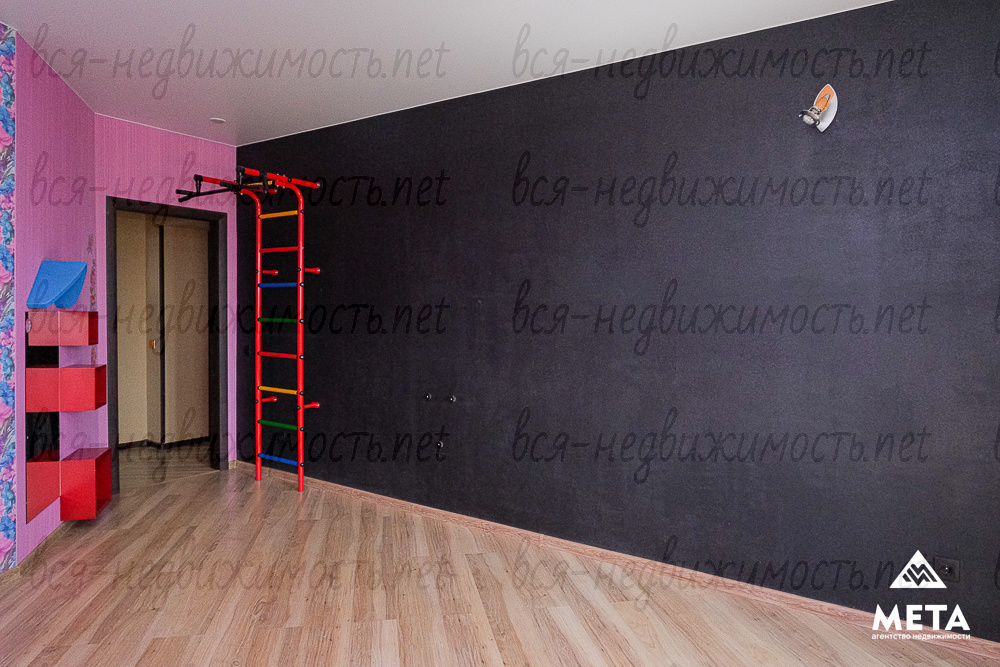 вся-недвижимость.net вся-недвижимость.net
вся-недвижимость.net вся-недвижимость.net
вся-недвижимость.net вся-недвижимость.net
вся-недвижимость.net вся-недвижимость.net
вся-недвижимость.net вся-недвижимость.net
МЕТА
агентство недвижимости